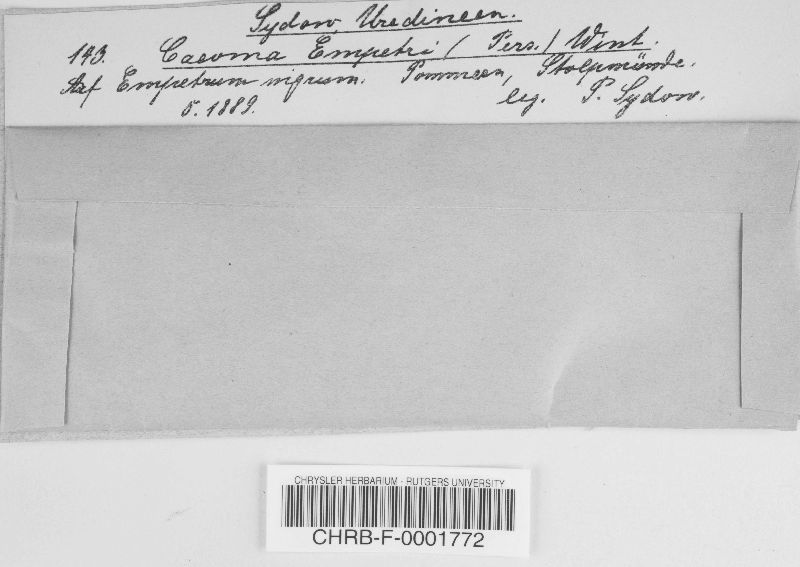 Sydow, Uredineen.
143. Caeoma Empetri (Pers.) Wint.
Auf Empetrum nigrum. Pommern, Stolpmünde.
5. 1889. leg. P. Sydow.
CHRYSLER HERBARIUM - RUTGERS UNIVERSITY
CHRB-F-0001772